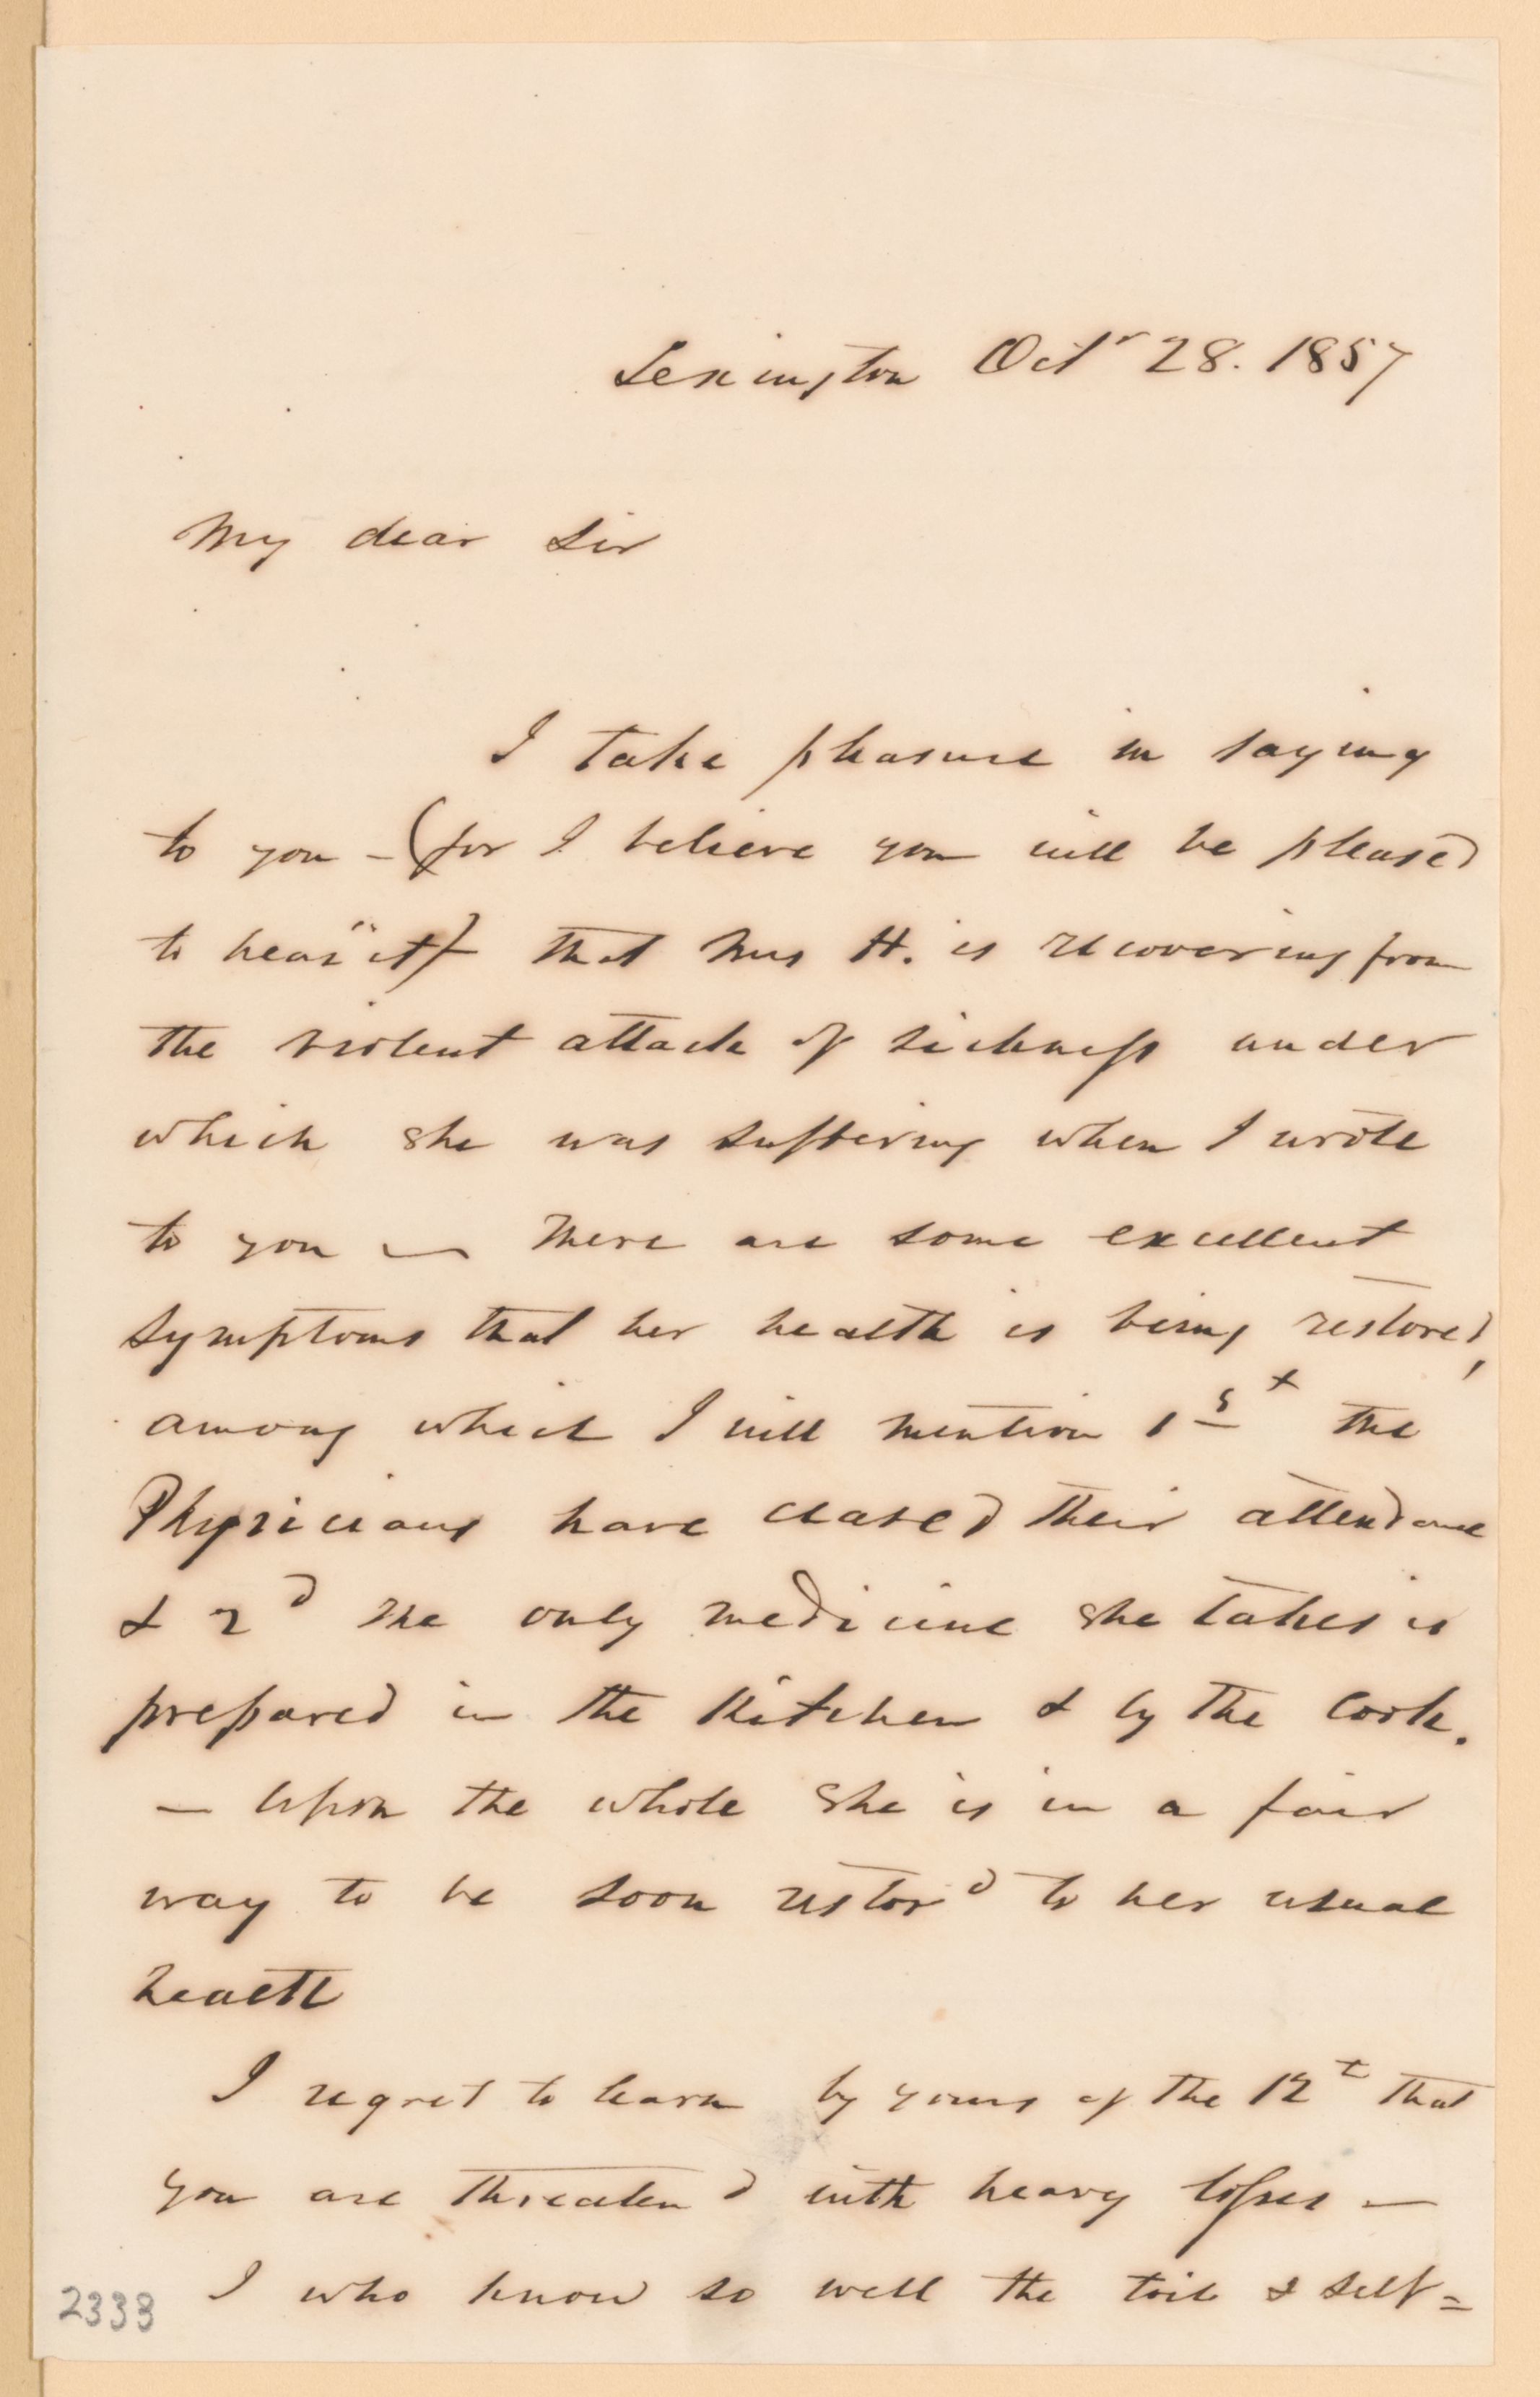 Lexington Octr 28. 1857
My dear Sir
I take pleasure in saying
to you - (for I believe you will be pleased
to hear it) - that Mrs H. is recovering from
the violent attack of sickness under
which she was suffering when I wrote
to you — There are some excellent
symptoms that her health is being restored,
among which I will mention 1st the
Physicians have ceased their attendance
& 2d the only medicine she takes is
prepared in the Kitchen & by the Cook.
— Upon the whole she is in a fair
way to be soon restord to her usual
health
I regret to learn by yours of the 12t that
you are threatend with heavy losses —
I who know so well the toil & self=
2333